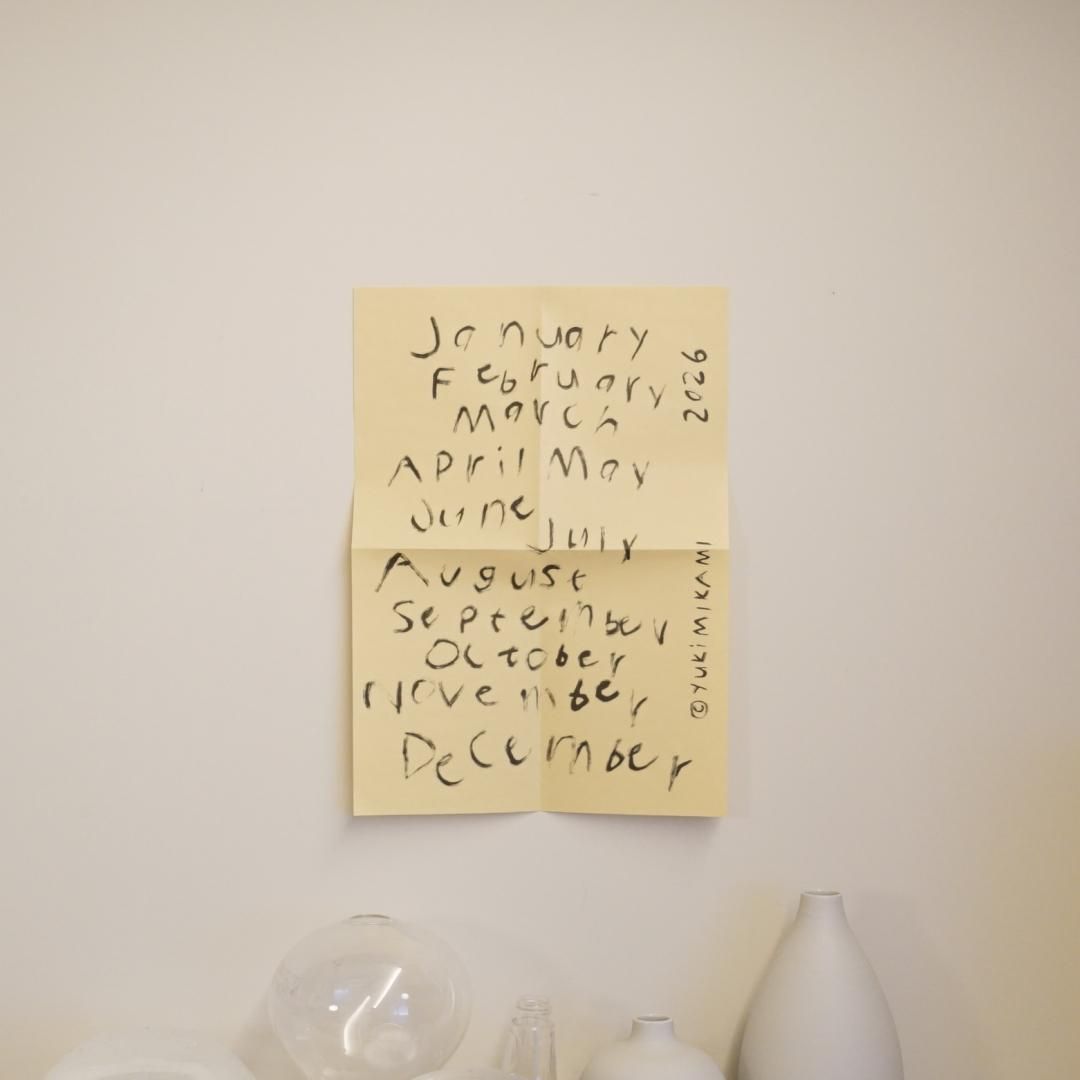 January
February
March
April May
June
July
August
September
October
November
December
2026
©YUKI MIKAMI